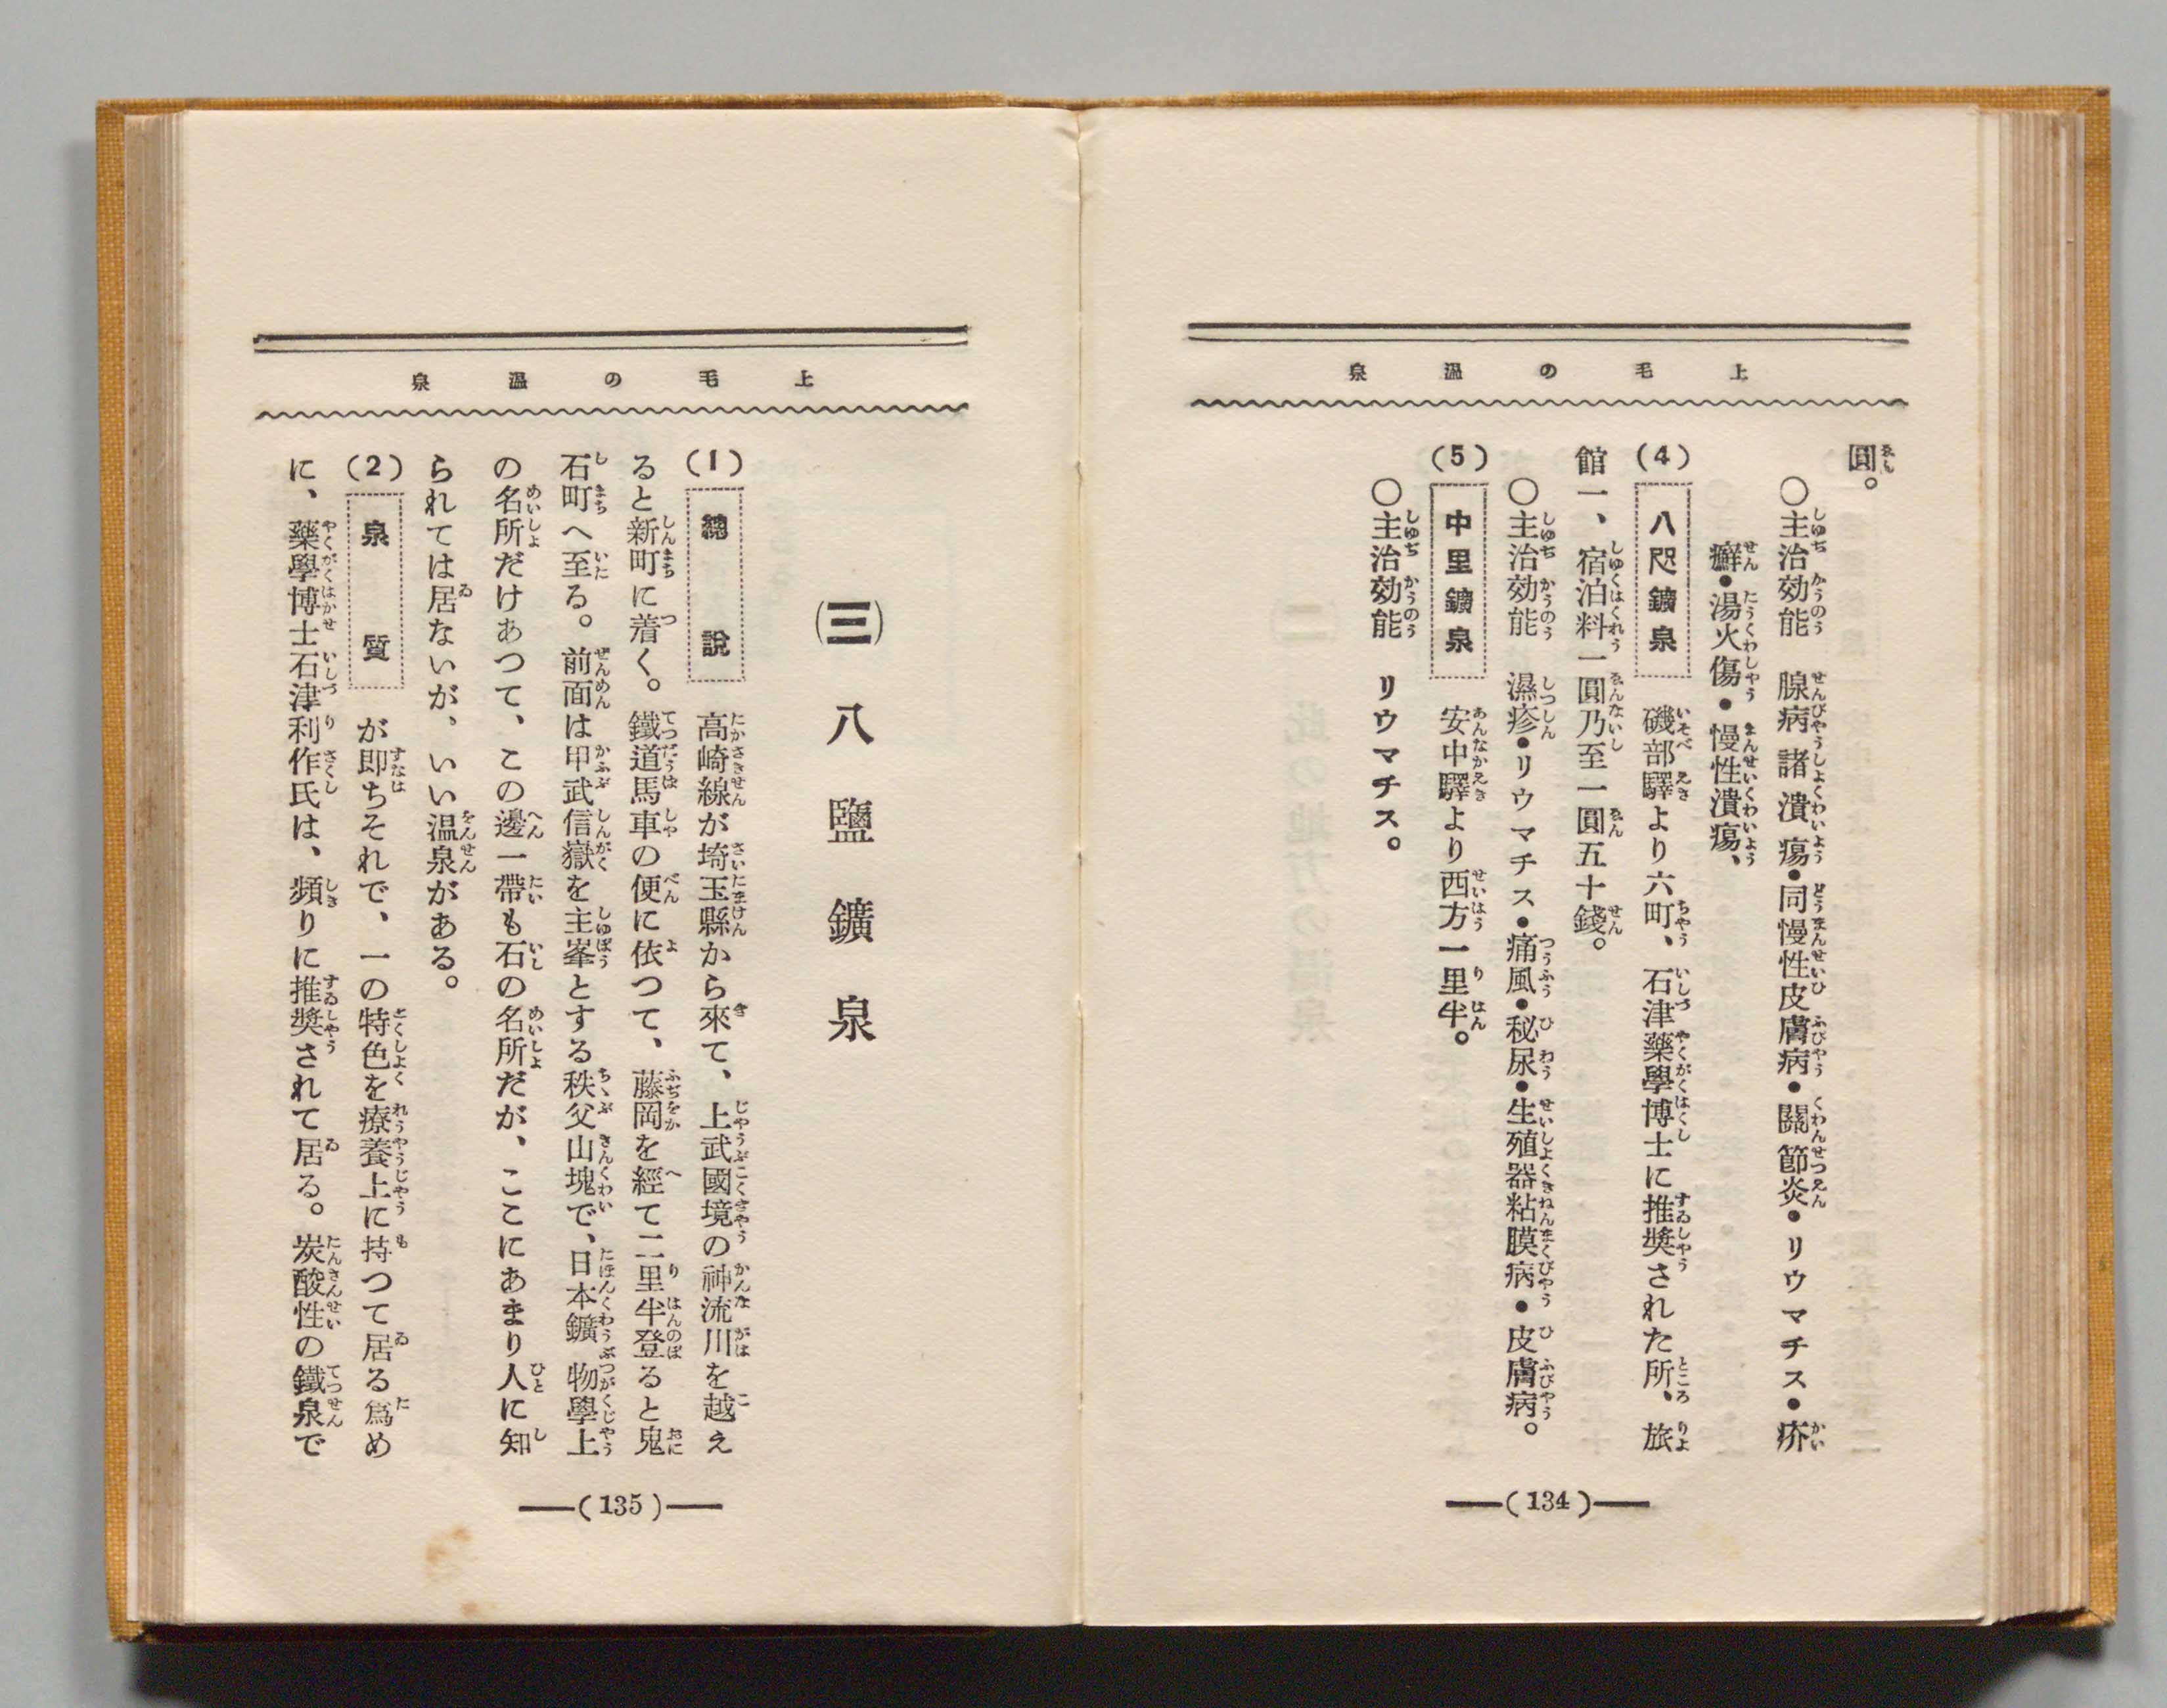 上毛の温泉
圓。
〇主治効能　腺病諸潰瘍•同慢性皮膚病•關節炎•リウマチス•疥
癬•湯火傷•慢性潰瘍、
(4) 八咫鑛泉　磯部驛より六町、石津藥學博士に推奬された所、旅
館一、宿泊料一圓乃至一圓五十錢。
〇主治効能　濕疹•リウマチス•痛風•秘尿•生殖器粘膜病•皮膚病。
(5) 中里鑛泉　安中驛より西方一里半。
〇主治効能　リウマチス。
(134)
上毛の温泉
(三) 八鹽鑛泉
(1) 總說　高崎線が埼玉縣から來て、上武國境の神流川を越え
ると新町に着く。鐵道馬車の便に依つて、藤岡を經て二里半登ると鬼
石町へ至る。前面は甲武信嶽を主峯とする秩父山塊で、日本鑛物學上
の名所だけあつて、この邊一帶も石の名所だが、ここにあまり人に知
られては居ないが、いい温泉がある。
(2) 泉質　が即ちそれで、一の特色を療養上に持つて居る爲め
に、藥學博士石津利作氏は、頻りに推奬されて居る。炭酸性の鐵泉で
(135)